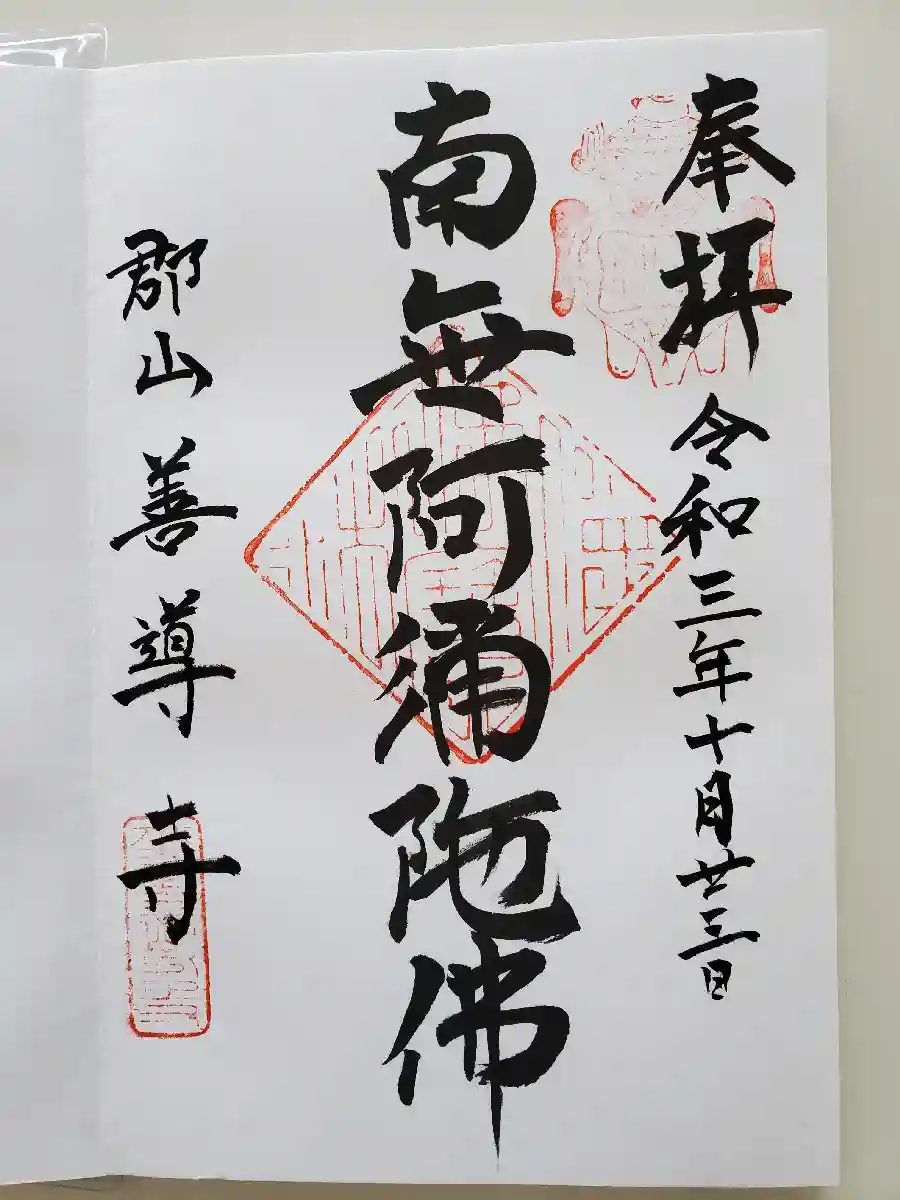 奉拝 令和三年十月廿三日
南無阿彌陀佛
郡山善導寺